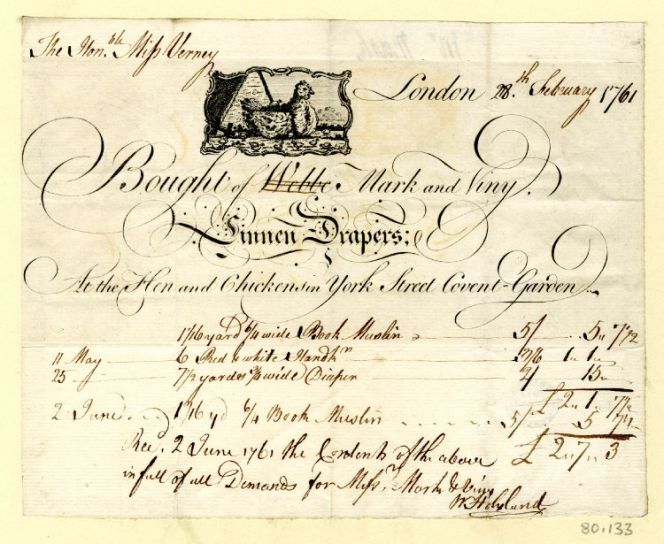 The Hon.ble Miss Verney
London 28.th February 1761
Bought of Webbe Mark and Viny.
Linnen Drapers;
At the Hen and Chickens in York Street Covent-Garden
1 1/16 yard 6/4 wide Book Muslin 5/ 5 7 1/2
11 May 6 Red & white Handk.rs 3/6 1 1
25 7 1/2 yardes wide Diaper 2/ 15
£ 2 1 7 1/2
2 June 1 1/16 yd 6/4 Book Muslin 5/ 5 7 1/2
£ 2 7 3
Rec.d 2 June 1761 the Contents of the above
in full of all Demands for Mess.rs Mark & Viny
80.133